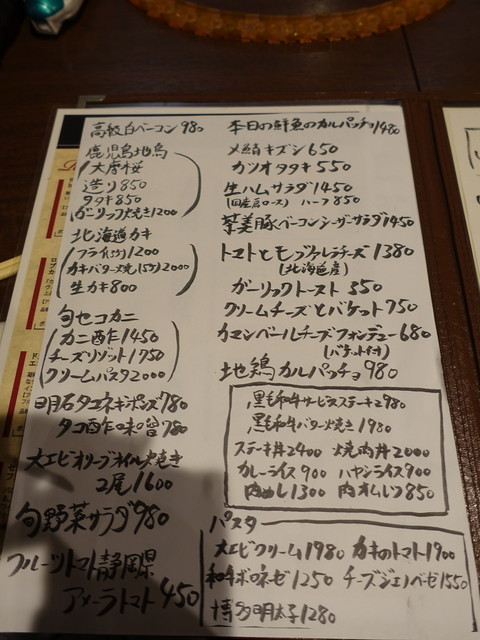 高級白ベーコン 980
鹿児島地鳥
大摩桜
造り 850
タタキ 850
ガーリック焼き 1200
北海道カキ
フライ(5ケ) 1200
カキバター焼(5ケ) 2000
生カキ 800
旬セコカニ
カニ酢 1450
チーズリゾット 1750
クリームパスタ 2000
明石タコネギポン酢 780
タコ酢味噌 780
大エビオリーブオイル焼き
2尾 1600
旬野菜サラダ 980
フルーツトマト静岡県
アメーラトマト 450
本日の鮮魚のカルパッチョ 1480
〆鯖キズシ 650
カツオタタキ 550
生ハムサラダ 1450
(国産ロース) ハーフ 850
茶美豚ベーコンシーザーサラダ 1450
トマトとモッツァレラチーズ 1380
(北海道産)
ガーリックトースト 350
クリームチーズとバケット 750
カマンベールチーズフォンデュー 680
(バケット付)
地鶏カルパッチョ 980
黒毛和牛サービスステーキ 2980
黒毛和牛バター焼き 1980
ステーキ丼 2400 焼肉丼 2000
カレーライス 900 ハヤシライス 900
肉めし 1300 肉オムレツ 850
パスタ
大エビクリーム 1980 カキのトマト 1900
和牛ボロネーゼ 1250 チーズジェノベーゼ 1550
博多明太子 1280